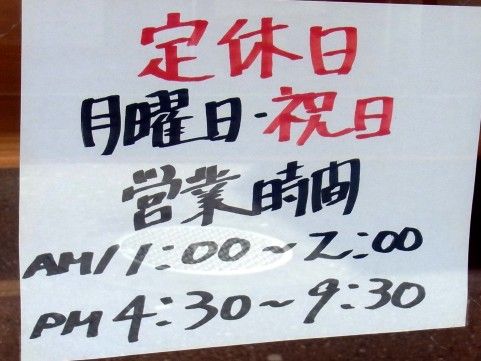 定休日
月曜日・祝日
営業時間
AM11:00~2:00
PM4:30~9:30